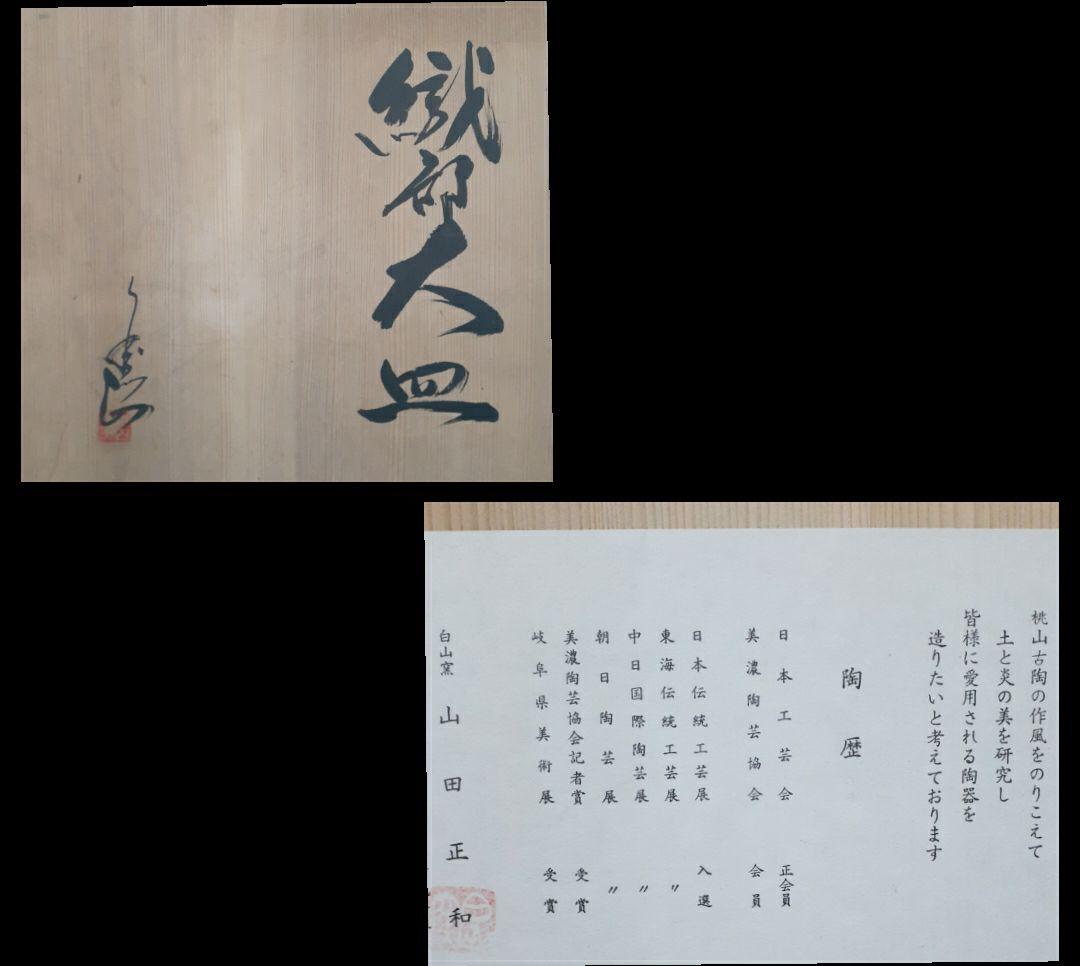 織部大皿
桃山古陶の作風をのりこえて
土と炎の美を研究し
皆様に愛用される陶器を
造りたいと考えております
陶歴
日本工芸会 正会員
美濃陶芸協会 会員
日本伝統工芸展 入選
東海伝統工芸展 〃
中日国際陶芸展 〃
朝日陶芸展 〃
美濃陶芸協会記者賞 受賞
岐阜県美術展 受賞
白山窯 山田正和